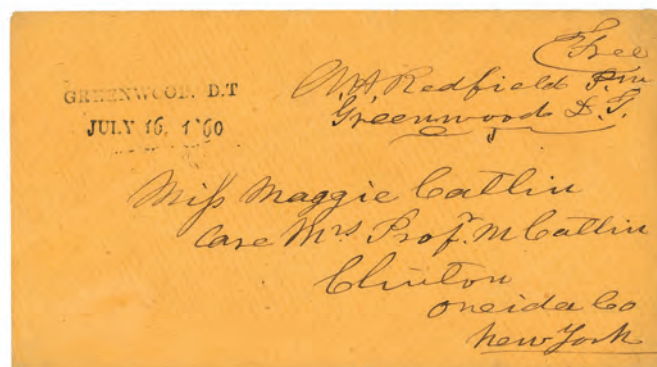 GREENWOOD. D.T
JULY 16, 1'60
Free
A Redfield P.m
Greenwood D. T.
Miss Maggie Catlin
Care Mrs Prof. M Catlin
Clinton
Oneida Co
New York